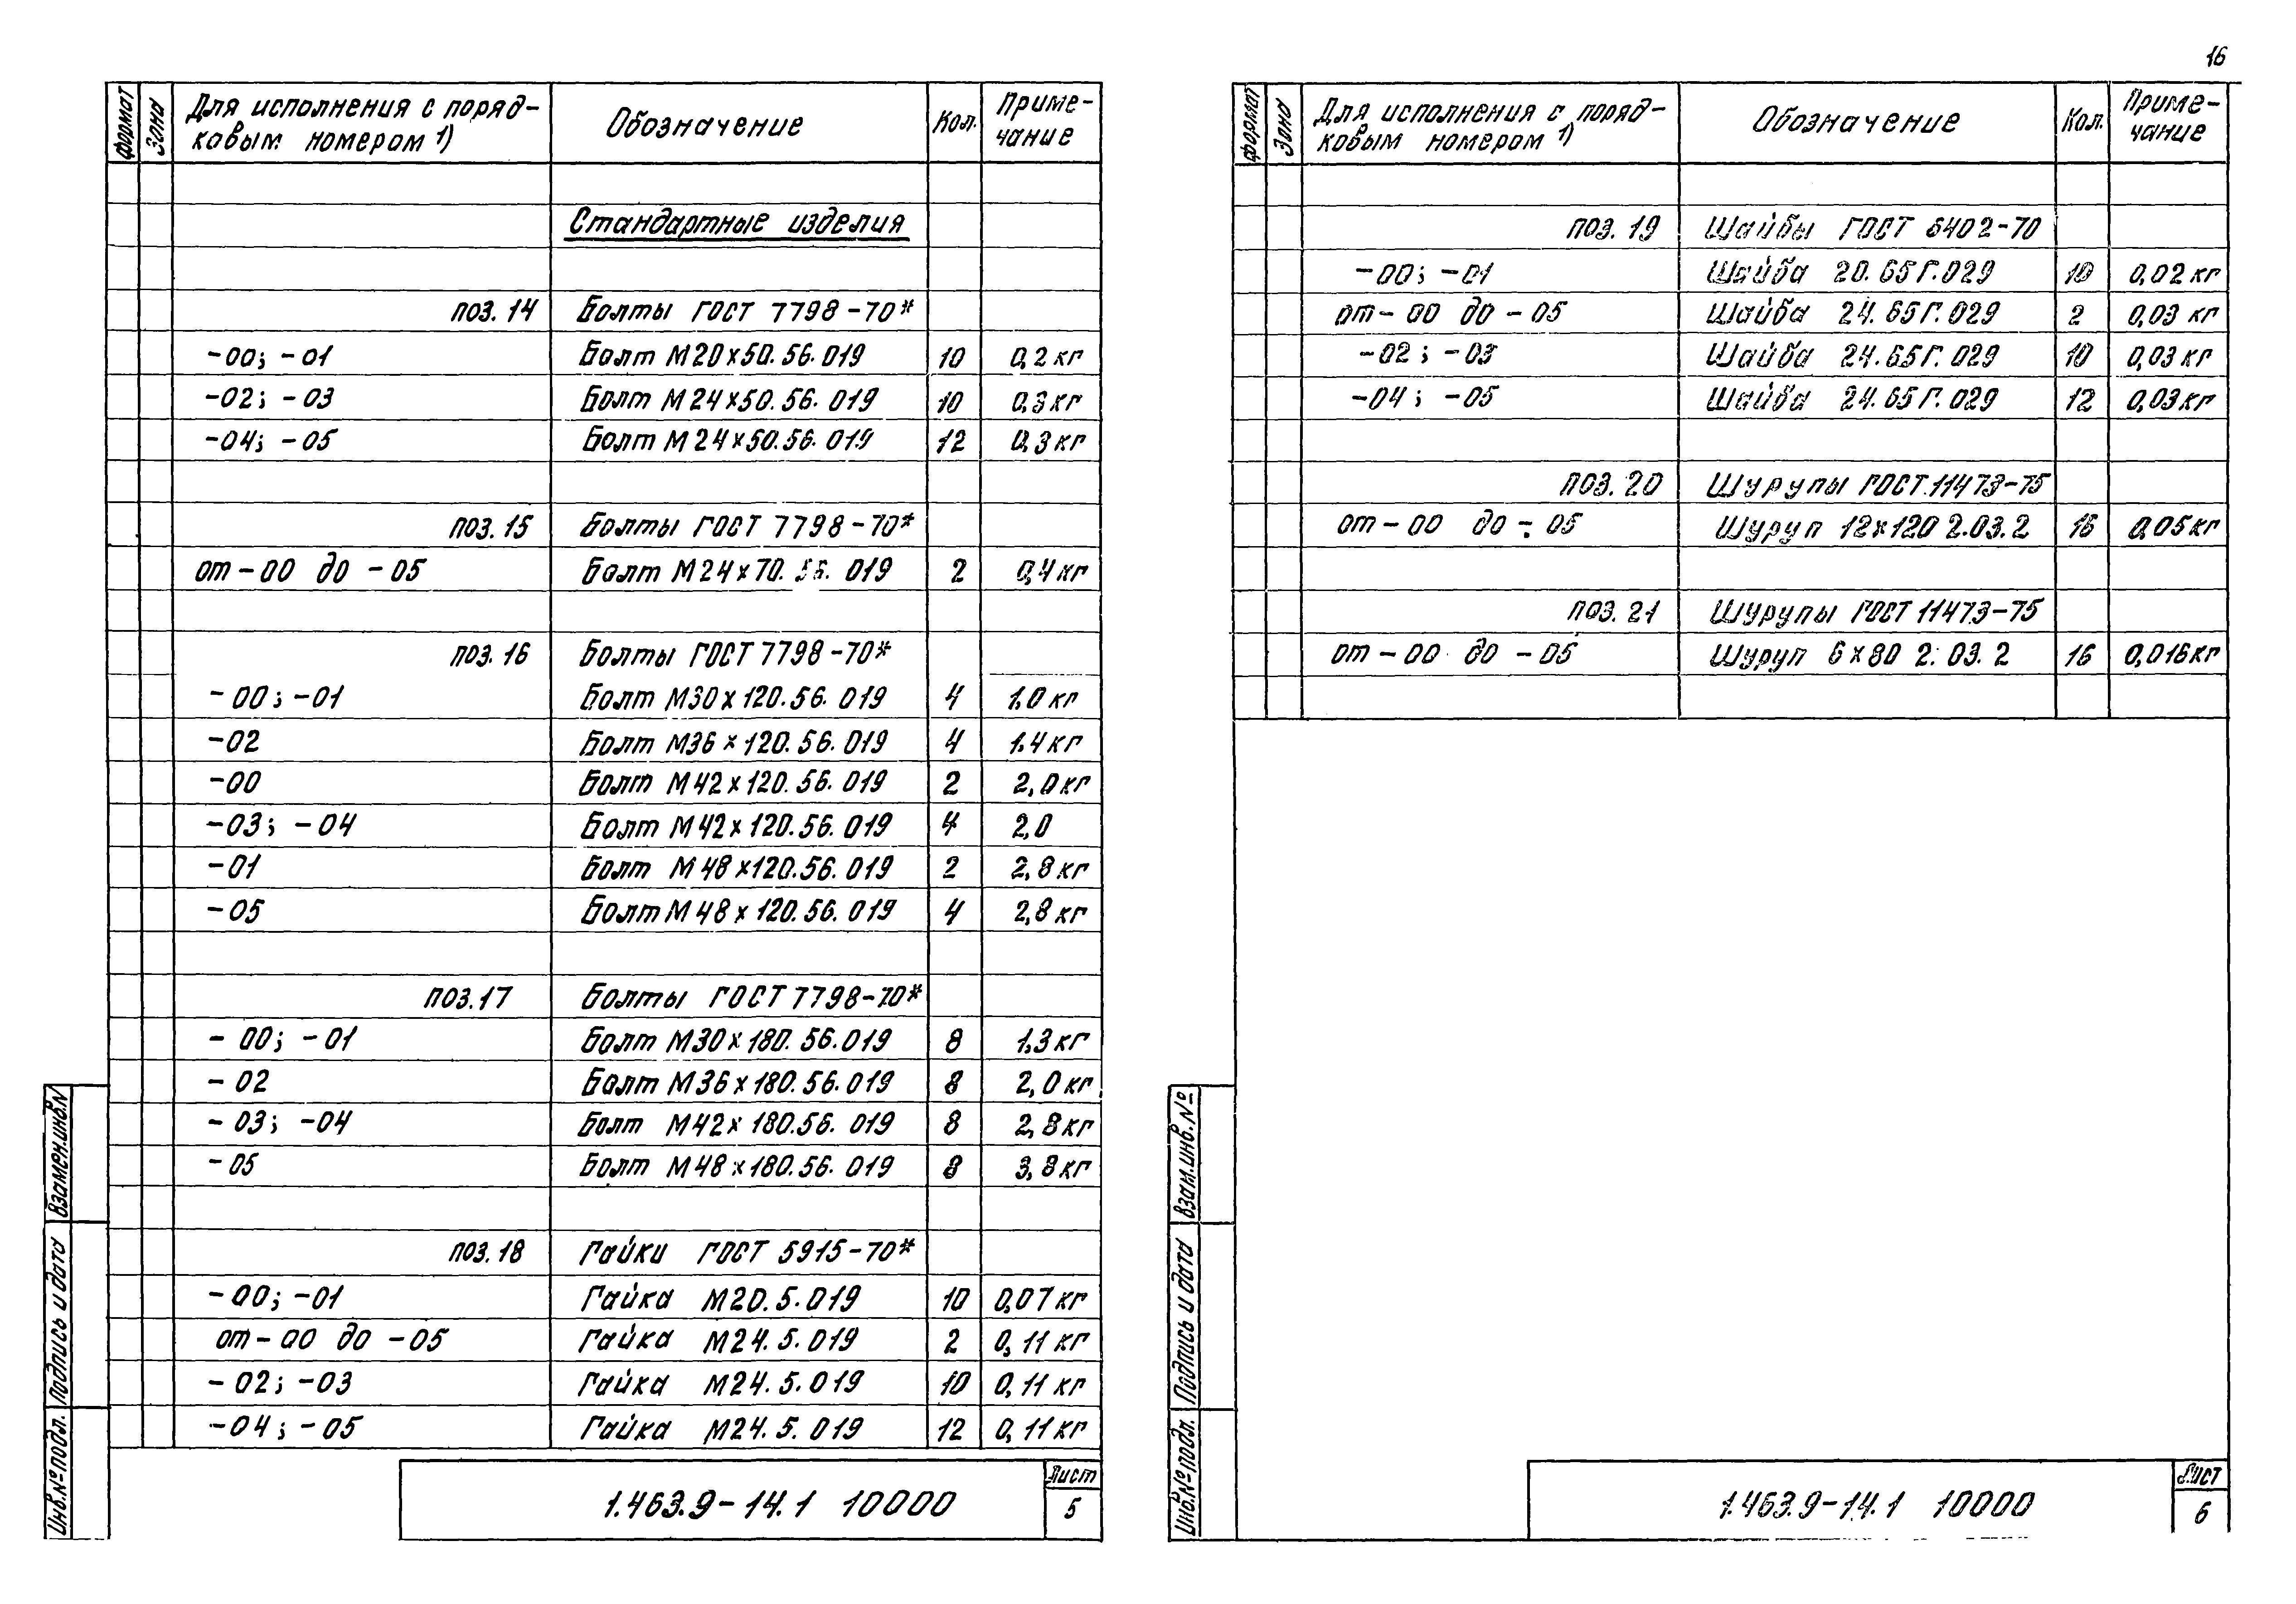 16
формат Зона Для исполнения с поряд- Обозначение Кол. Приме-
ковым номером 1) чание
Стандартные изделия
поз. 14 Болты ГОСТ 7798-70*
-00; -01 Болт М20х50. 56. 019 10 0,2 кг
-02; -03 Болт М24х50. 56. 019 10 0,3 кг
-04; -05 Болт М24х50.56. 019 12 0,3 кг
поз. 15 Болты ГОСТ 7798-70*
от -00 до -05 Болт М24х70. 56. 019 2 0,4 кг
поз. 16 Болты ГОСТ 7798-70*
-00; -01 Болт М30х120.56. 019 4 1.0 кг
-02 Болт М36х120. 56. 019 4 1.4 кг
-00 Болт М42х120. 56. 019 2 2,0 кг
-03; -04 Болт М42х120.56. 019 4 2,0
-01 Болт М48х120.56. 019 2 2,8 кг
-05 Болт М48х120.56. 019 4 2,8 кг
поз. 17 Болты ГОСТ 7798-70*
-00; -01 Болт М30х180. 56.019 8 1.3 кг
-02 Болт М36х180.56.019 8 2,0 кг
-03; -04 Болт М42х180.56. 019 8 2,8 кг
-05 Болт М48х180.56. 019 8 3,8 кг
поз. 18 Гайки ГОСТ 5915-70*
-00; -01 Гайка М20. 5. 019 10 0,07 кг
от -00 до -05 Гайка М24. 5. 019 2 0,11 кг
-02; -03 Гайка М24. 5. 019 10 0,11 кг
-04; -05 Гайка М24. 5. 019 12 0,11 кг
Инв.№подл. Подпись и дата Взамен.инв.N
1.463.9-14.1 10000
Лист
5
формат Зона Для исполнения с поряд- Обозначение Кол. Приме-
ковым номером 1) чание
поз. 19 Шайбы ГОСТ 6402-70
-00; -01 Шайба 20. 65Г. 029 10 0,02 кг
от -00 до -05 Шайба 24. 65Г. 029 2 0,03 кг
-02; -03 Шайба 24.65Г. 029 10 0,03 кг
-04; -05 Шайба 24.65Г. 029 12 0,03 кг
поз. 20 Шурупы ГОСТ 11473-75
от -00 до -05 Шуруп 12х120 2.03. 2 16 0,05 кг
поз. 21 Шурупы ГОСТ 11473-75
от -00 до -05 Шуруп 6х80 2. 03. 2 16 0,016кг
Инв.№подл. Подпись и дата Взам.инв.№
1.463.9-14.1 10000
Лист
6